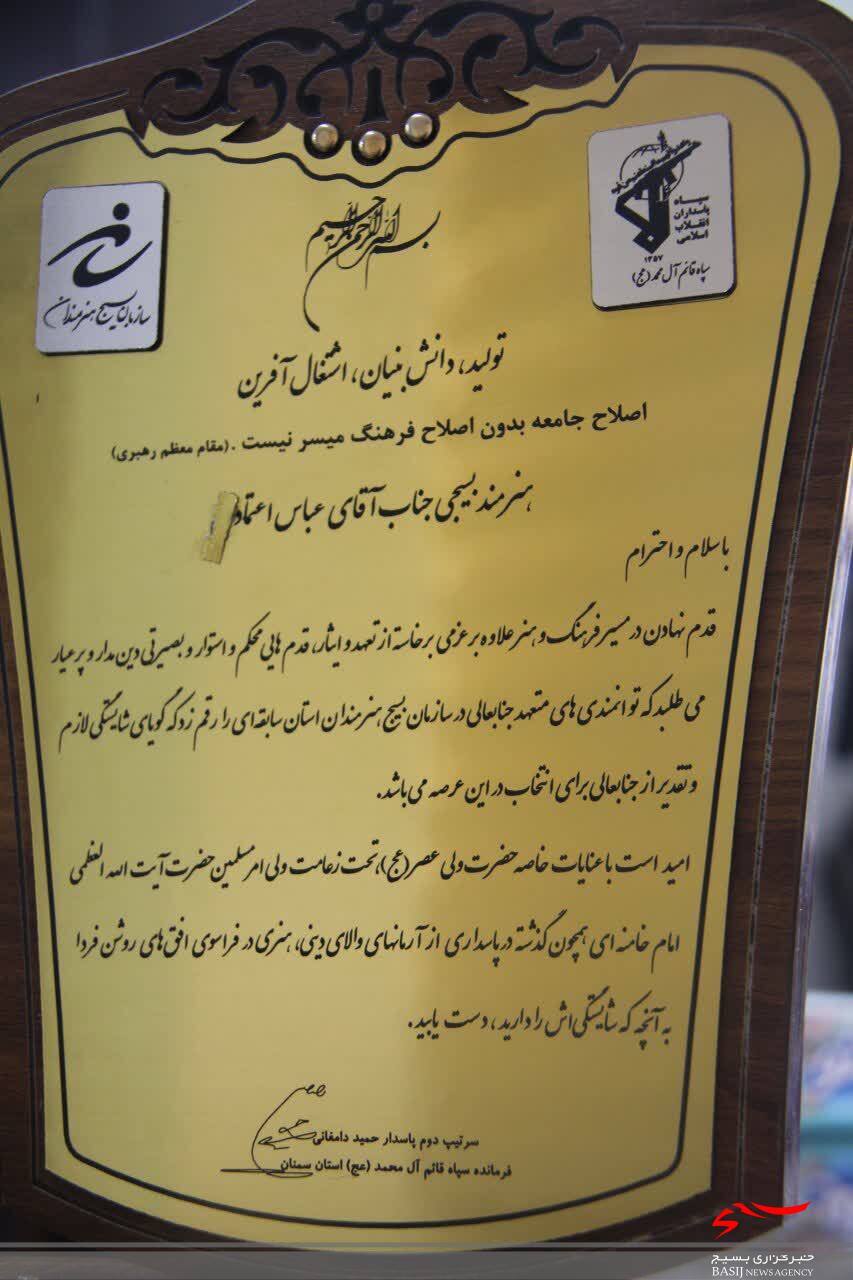 بسم الله الرحمن الرحیم
سپاه
پاسداران
انقلاب
اسلامی
۱۳۵۷
سپاه قائم آل محمد (عج)
سازمان بسیج هنرمندان
تولید، دانش بنیان، اشتغال آفرین
اصلاح جامعه بدون اصلاح فرهنگ میسر نیست .(مقام معظم رهبری)
هنرمند بسیجی جناب آقای عباس اعتماد
باسلام و احترام
قدم نهادن در مسیر فرهنگ و هنر علاوه بر عزمی برخاسته از تعهد و ایثار، قدم هایی محکم و استوار و بصیرتی دین مدار و پرعیار
می طلبد که توانمندی های متعهد جنابعالی در سازمان بسیج هنرمندان استان سابقه ای را رقم زد که گویای شایستگی لازم
و تقدیر از جنابعالی برای انتخاب در این عرصه می باشد.
امید است با عنایات خاصه حضرت ولی عصر (عج)، تحت زعامت ولی امر مسلمین حضرت آیت الله العظمی
امام خامنه ای همچون گذشته در پاسداری از آرمانهای والای دینی، هنری در فراسوی افق های روشن فردا
به آنچه که شایستگی اش را دارید، دست یابید.
سرتیپ دوم پاسدار حمید دامغانی
فرمانده سپاه قائم آل محمد (عج) استان سمنان
خبرگزاری بسیج
BASIJ NEWS AGENCY